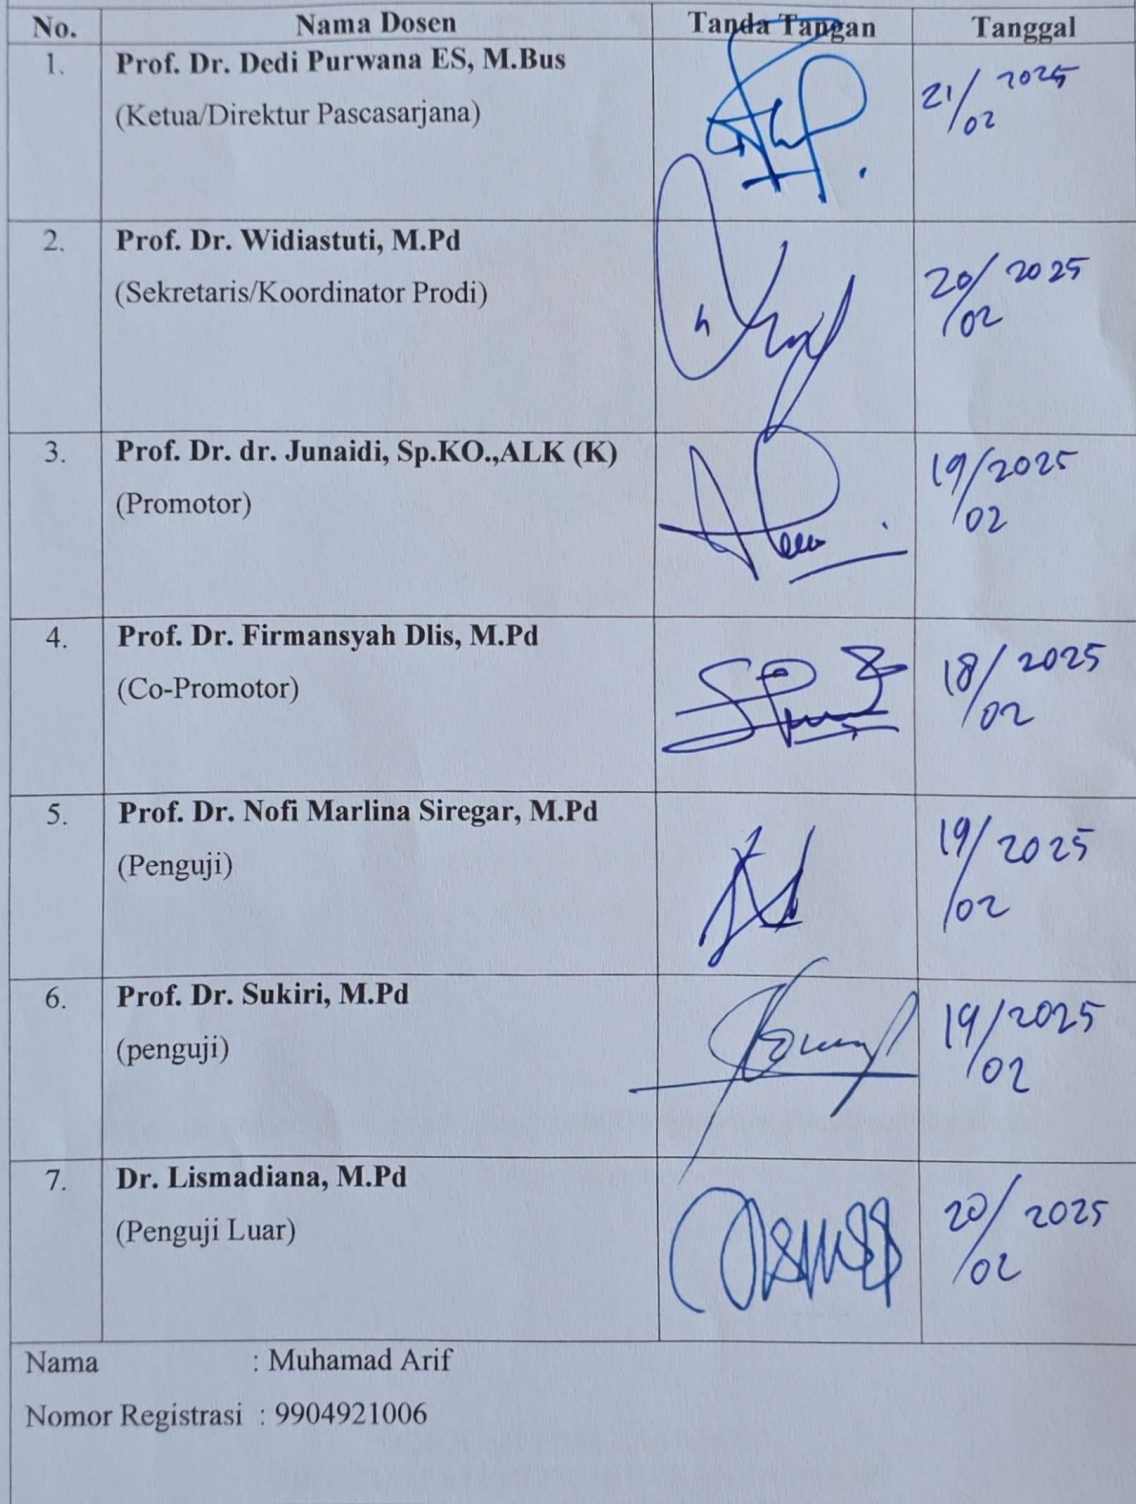 No. Nama Dosen Tanda Tangan Tanggal
1. Prof. Dr. Dedi Purwana ES, M.Bus
(Ketua/Direktur Pascasarjana)
21/02 2025
2. Prof. Dr. Widiastuti, M.Pd
(Sekretaris/Koordinator Prodi)
20/02 2025
3. Prof. Dr. dr. Junaidi, Sp.KO.,ALK (K)
(Promotor)
19/02 2025
4. Prof. Dr. Firmansyah Dlis, M.Pd
(Co-Promotor)
18/02 2025
5. Prof. Dr. Nofi Marlina Siregar, M.Pd
(Penguji)
19/02 2025
6. Prof. Dr. Sukiri, M.Pd
(penguji)
19/02 2025
7. Dr. Lismadiana, M.Pd
(Penguji Luar)
20/02 2025
Nama : Muhamad Arif
Nomor Registrasi : 9904921006